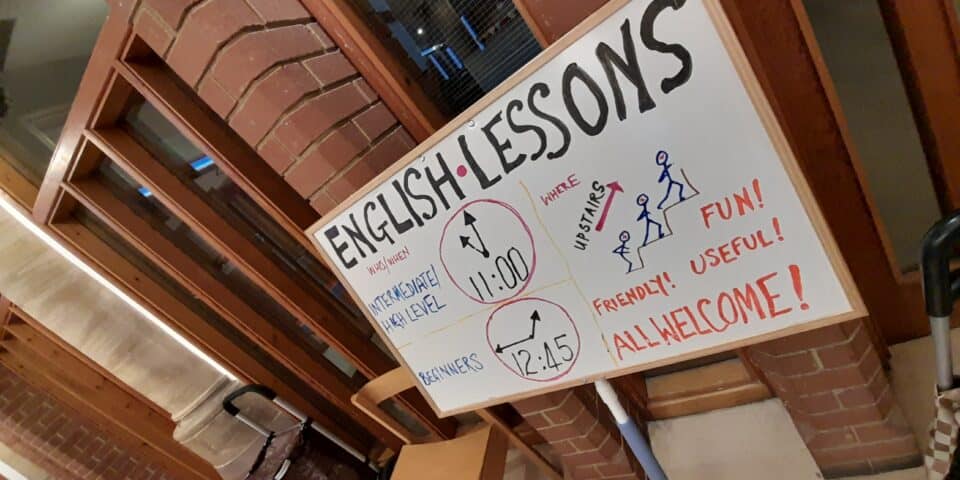 ENGLISH•LESSONS
WHO/WHEN
INTERMEDIATE/
HIGH LEVEL
11:00
BEGINNERS
12:45
WHERE
UPSTAIRS
FUN!
FRIENDLY! USEFUL!
ALL WELCOME!